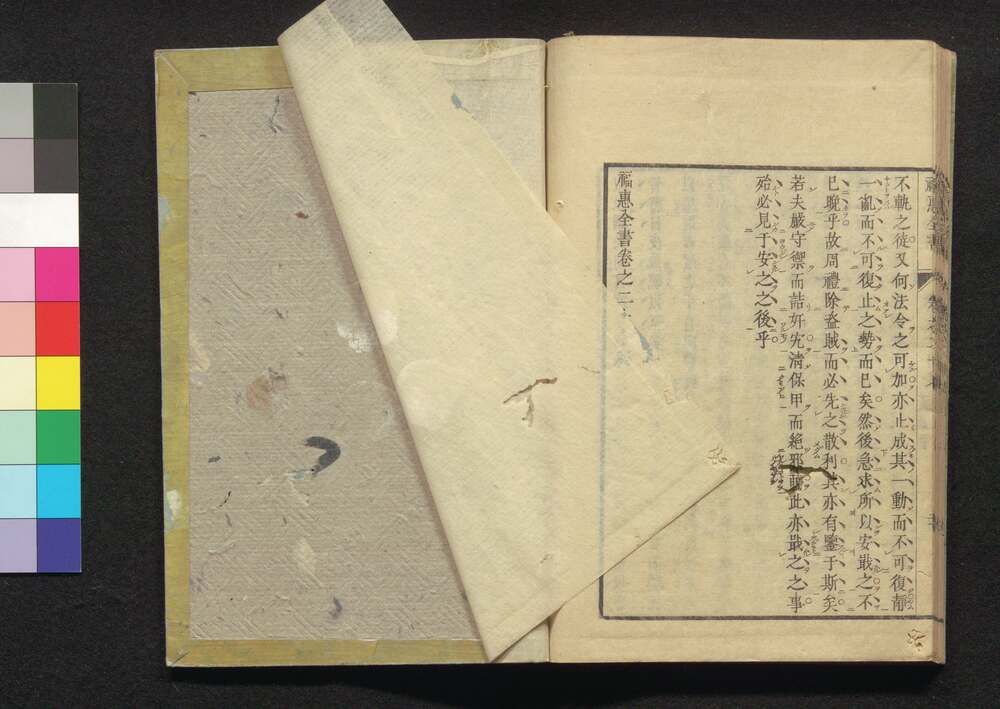 福惠全書
不軌之徒又何法令之可加亦止成其一動而不可復靜
一亂而不可復止之勢而已矣然後急求所以安戢之不
已晚乎故周禮除盜賊而必先之散利其亦有鑒于斯矣
若夫嚴守禦而詰奸宄清保甲而絕邪此亦戢之之事
殆必見于安之之後乎
福惠全書卷之二